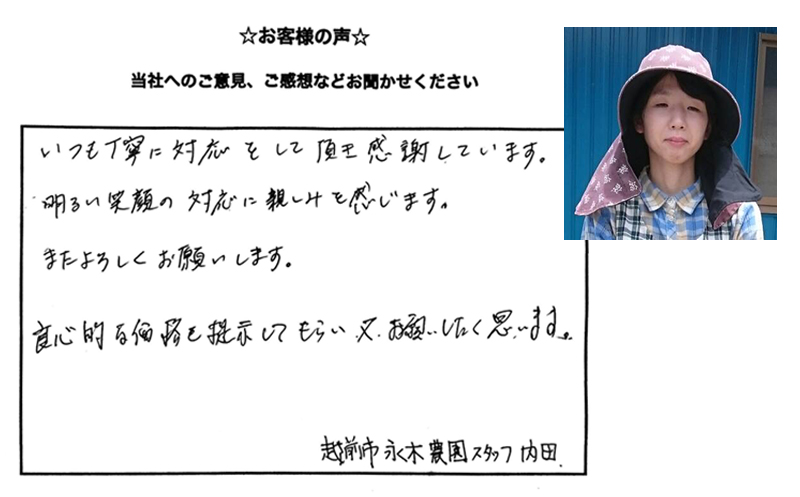 ☆お客様の声☆
当社へのご意見、ご感想などお聞かせください
いつも丁寧に対応をして頂き感謝しています。
明るい笑顔の対応に親しみを感じます。
またよろしくお願いします。
良心的な価格を提示してもらい又、お願いしたく思います。
越前市 永木農園スタッフ 内田